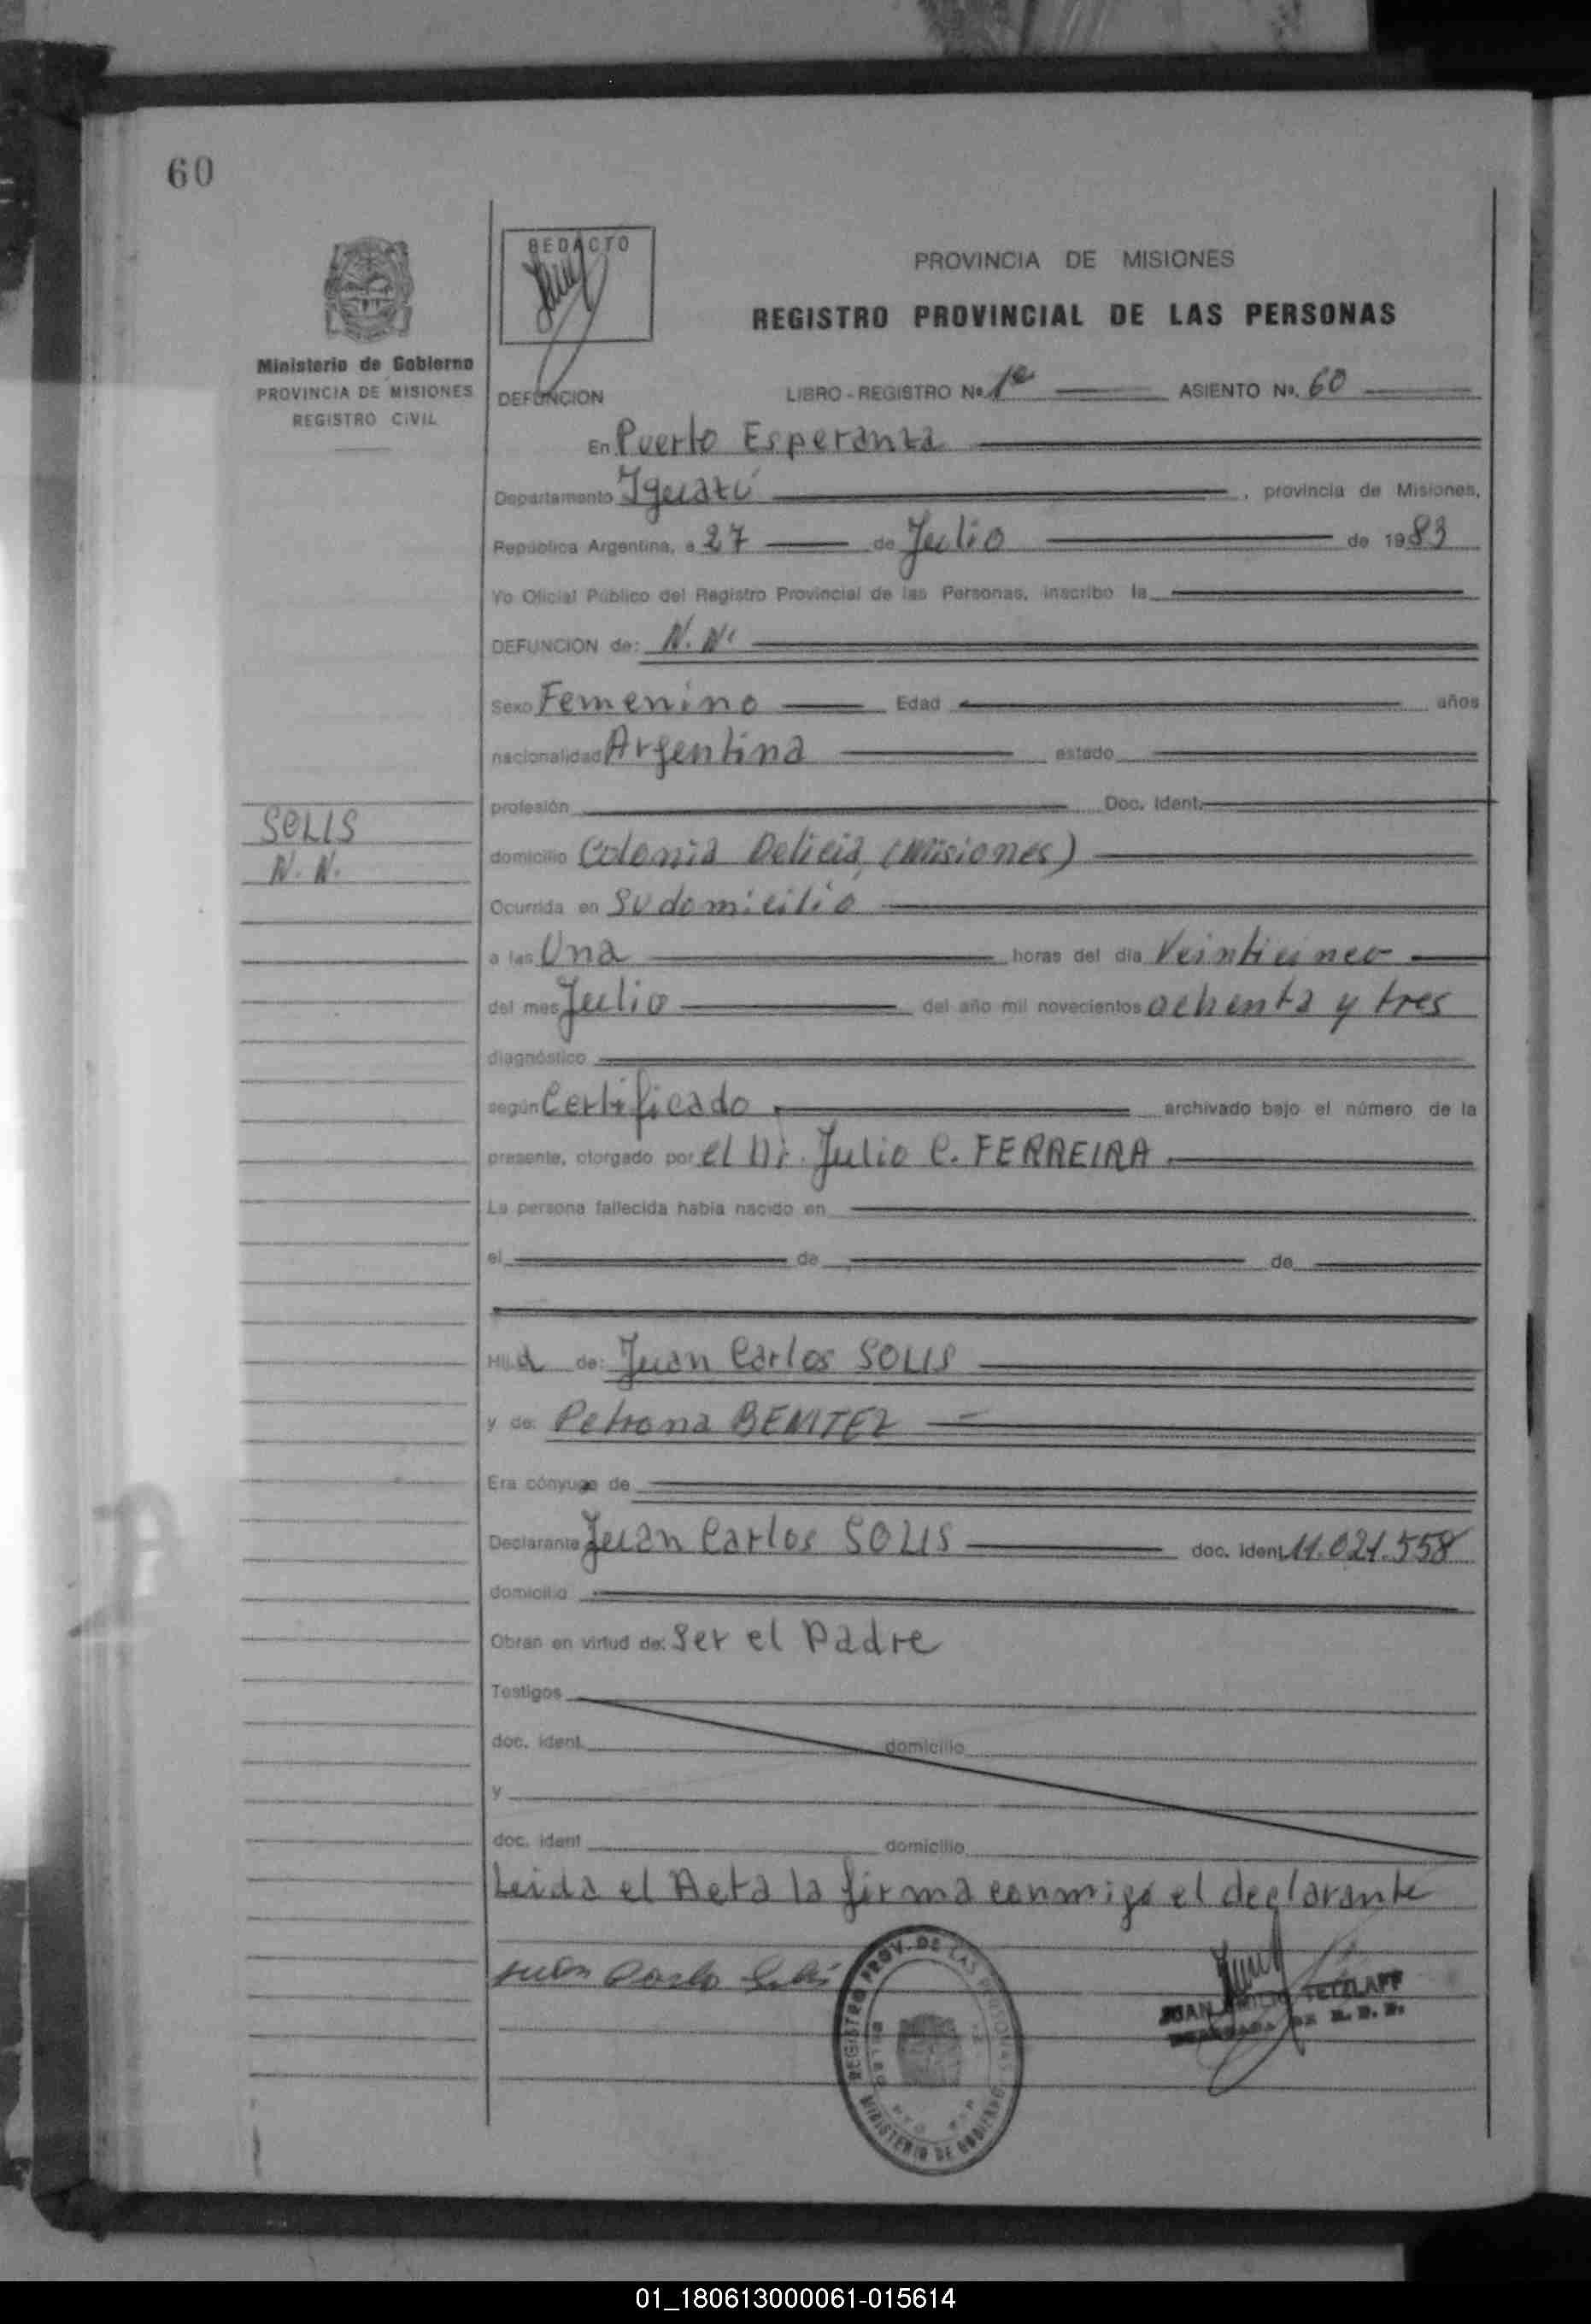 60
REDACTO
PROVINCIA DE MISIONES
REGISTRO PROVINCIAL DE LAS PERSONAS
Ministerio de Gobierno
PROVINCIA DE MISIONES
REGISTRO CIVIL
DEFUNCION LIBRO - REGISTRO Nº. 1º ASIENTO Nº. 60
En Puerto Esperanza
Departamento Iguazú, provincia de Misiones,
República Argentina, a 27 de Julio de 1983
Yo Oficial Público del Registro Provincial de las Personas, inscribo la
DEFUNCION de: N.N.
Sexo Femenino Edad años
nacionalidad Argentina estado
profesión Doc. Ident.
SOLIS
N. N.
domicilio Colonia Delicia, (Misiones)
Ocurrida en Su domicilio
a las Una horas del día Veinticinco
del mes Julio del año mil novecientos ochenta y tres
diagnóstico
según Certificado archivado bajo el número de la
presente, otorgado por el Dr. Julio C. FERREIRA
La persona fallecida había nacido en
el de de
Hija de: Juan Carlos SOLIS
y de: Petrona BENITEZ
Era cónyuge de
Declarante Juan Carlos SOLIS doc. ident. 11.021.558
domicilio
Obran en virtud de: Ser el Padre
Testigos
doc. ident. domicilio
y
doc. ident domicilio
Leida el Acta la firma conmigo el declarante
Juan Carlo Solis
REGISTRO PROV. DE LAS PERSONAS
MINISTERIO DE GOBIERNO
JUAN EMILIO TETZLAFF
01_180613000061-015614